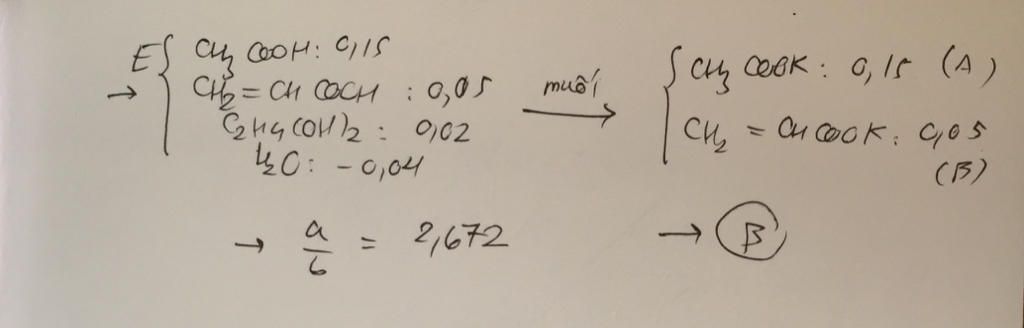 → E { CH3 COOH : 0,15
CH2 = CH COCH : 0,05
C2H4(OH)2 : 0,02
H2O : - 0,04
muối →
{ CH3 COOK : 0,15 (A)
CH2 = CH COOK : 0,05
(B)
→ a/b = 2,672 → B